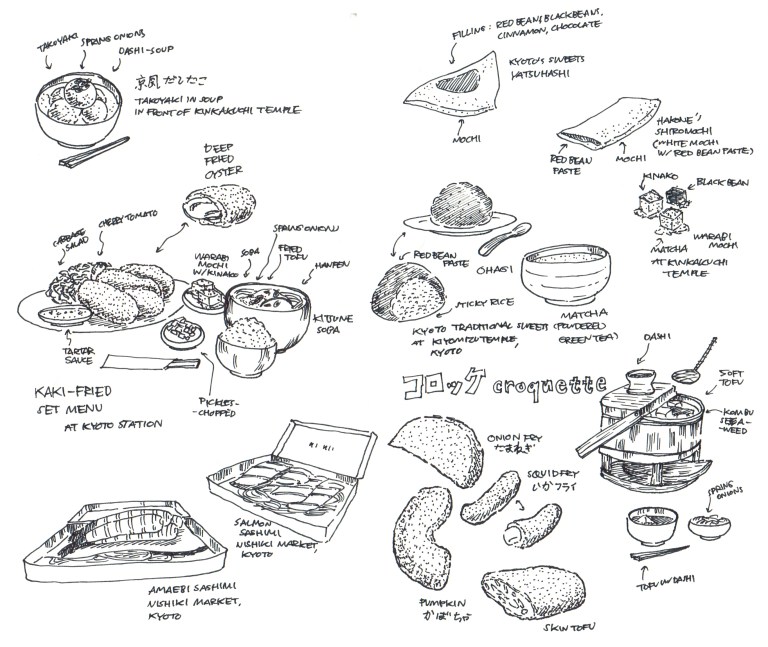 TAKOYAKI
SPRING ONIONS
DASHI-SOUP
京風だしたこ
TAKOYAKI IN SOUP
IN FRONT OF KINKAKUCHI TEMPLE
DEEP
FRIED
OYSTER
CABBAGE
SALAD
CHERRY TOMATO
WARABI
MOCHI
W/KINAKO
SOBA
SPRING ONION
FRIED
TOFU
HANPEN
KITSUNE
SOBA
TARTAR
SAUCE
PICKLES-
-CHOPPED
KAKI-FRIED
SET MENU
AT KYOTO STATION
SALMON
SASHIMI
NISHIKI MARKET,
KYOTO
AMAEBI SASHIMI
NISHIKI MARKET,
KYOTO
FILLING: RED BEANS, BLACKBEANS,
CINNAMON, CHOCOLATE
KYOTO'S SWEETS
YATSUHASHI
MOCHI
HAKONE'S
SHIROMOCHI
(WHITE MOCHI
W/ RED BEAN PASTE)
RED BEAN
PASTE
MOCHI
KINAKO
BLACK BEAN
WARABI
MOCHI
MATCHA
AT KINKAKUCHI
TEMPLE
RED BEAN
PASTE
OHAGI
STICKY RICE
MATCHA
(POWDERED
GREEN TEA)
KYOTO TRADITIONAL SWEETS
AT KIYOMIZU TEMPLE,
KYOTO
コロッケ croquette
ONION FRY
たまねぎ
SQUID FRY
いかフライ
PUMPKIN
かぼちゃ
SKIN TOFU
DASHI
SOFT
TOFU
KOMBU
SEEA-
-WEED
SPRING
ONIONS
TOFU W/ DASHI